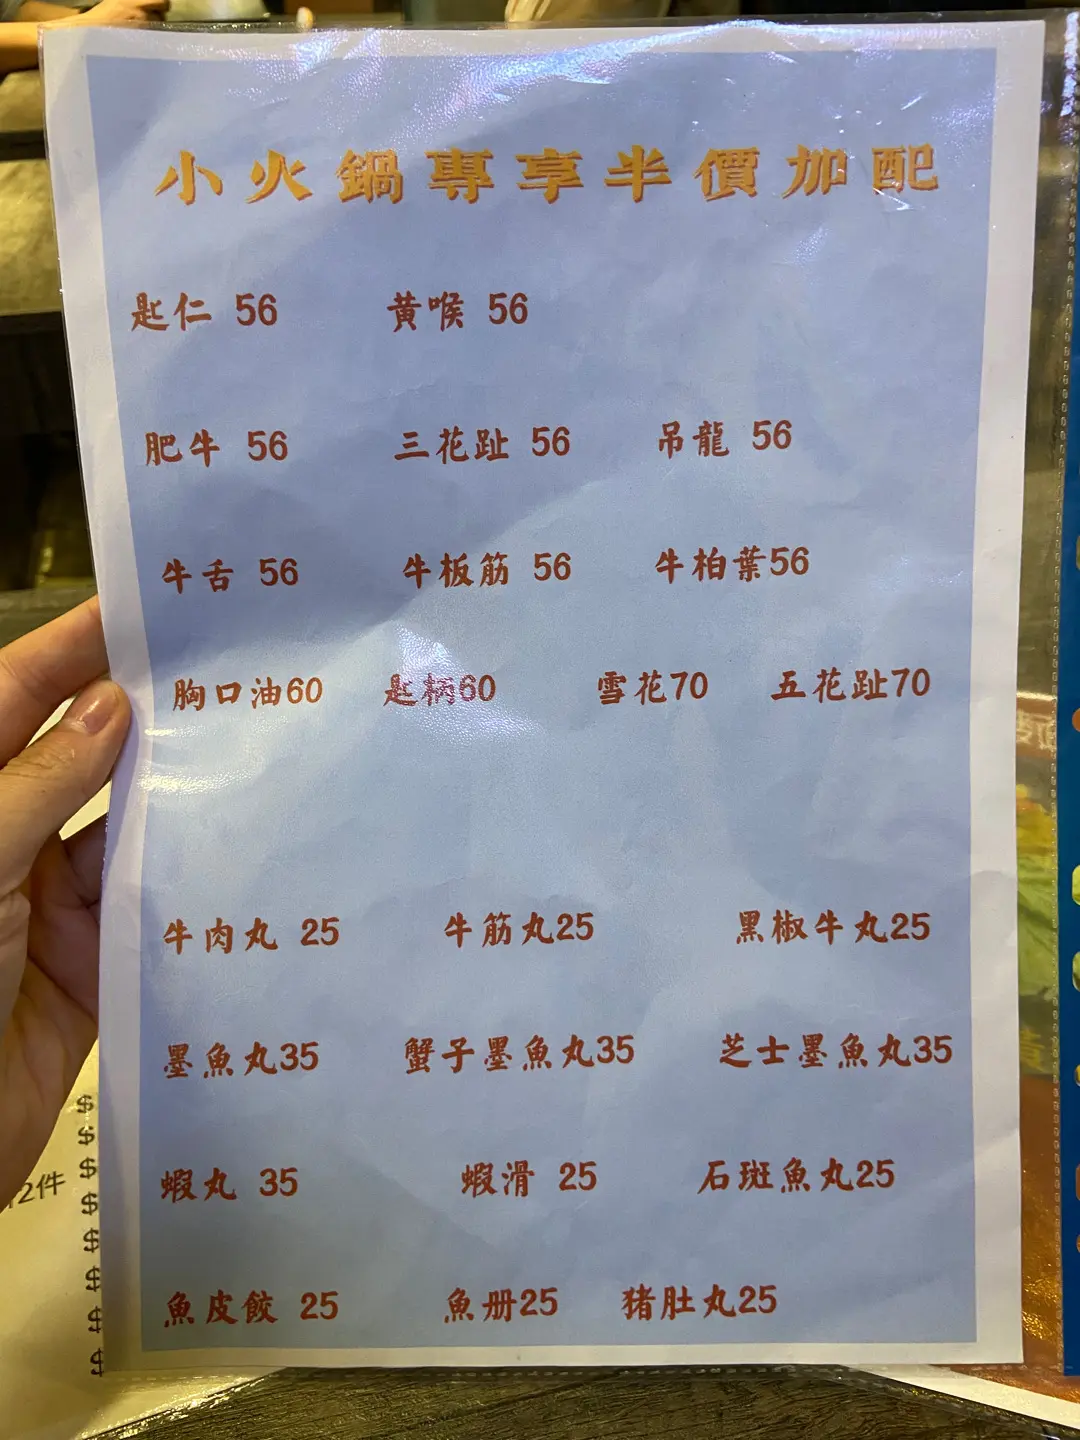 小火鍋專享半價加配
匙仁 56 黄喉 56
肥牛 56 三花趾 56 吊龍 56
牛舌 56 牛板筋 56 牛柏葉56
胸口油60 匙柄60 雪花70 五花趾70
牛肉丸 25 牛筋丸25 黑椒牛丸25
墨魚丸35 蟹子墨魚丸35 芝士墨魚丸35
蝦丸 35 蝦滑 25 石斑魚丸25
魚皮餃 25 魚册25 猪肚丸25
$
$
$
2件
$
$
$
$
$